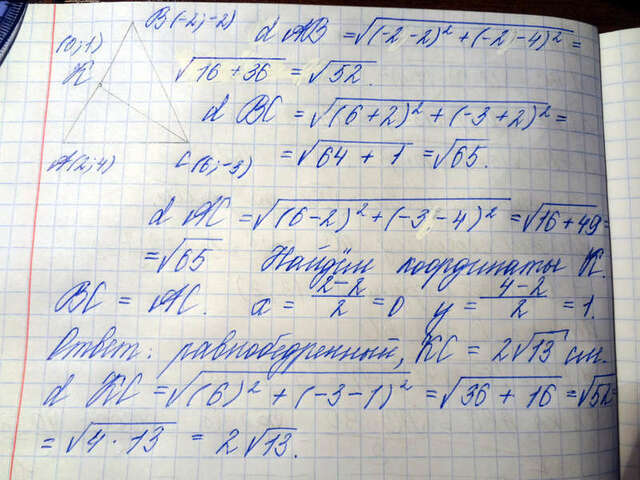 B(-2;-2)
d AB = √(-2-2)² + (-2-4)² =
(0;1)
K
√16+36 = √52.
d BC = √(6+2)² + (-3+2)² =
= √64 + 1 = √65.
A(2;4)
C(6;-3)
d AC = √(6-2)² + (-3-4)² = √16+49 =
= √65 Найдём координаты K.
BC = AC. x = 2-2/2 = 0 y = 4-2/2 = 1.
Ответ: равнобедренный, KC = 2√13 см.
d KC = √(6)² + (-3-1)² = √36 + 16 = √52 =
= √4·13 = 2√13.